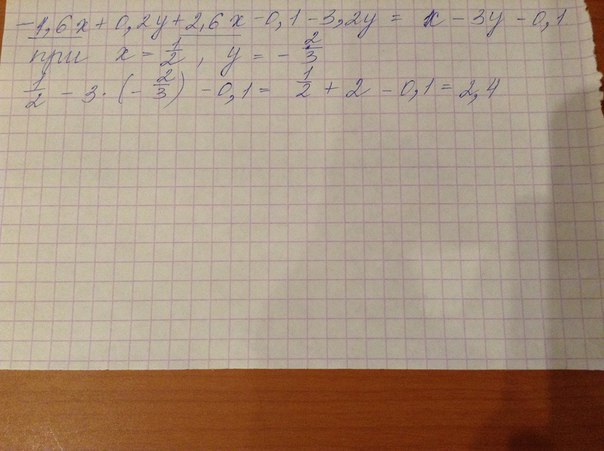 -1,6x + 0,2y + 2,6x - 0,1 - 3,2y = x - 3y - 0,1
при x = 1/2, y = - 2/3
1/2 - 3 · (- 2/3) - 0,1 = 1/2 + 2 - 0,1 = 2,4